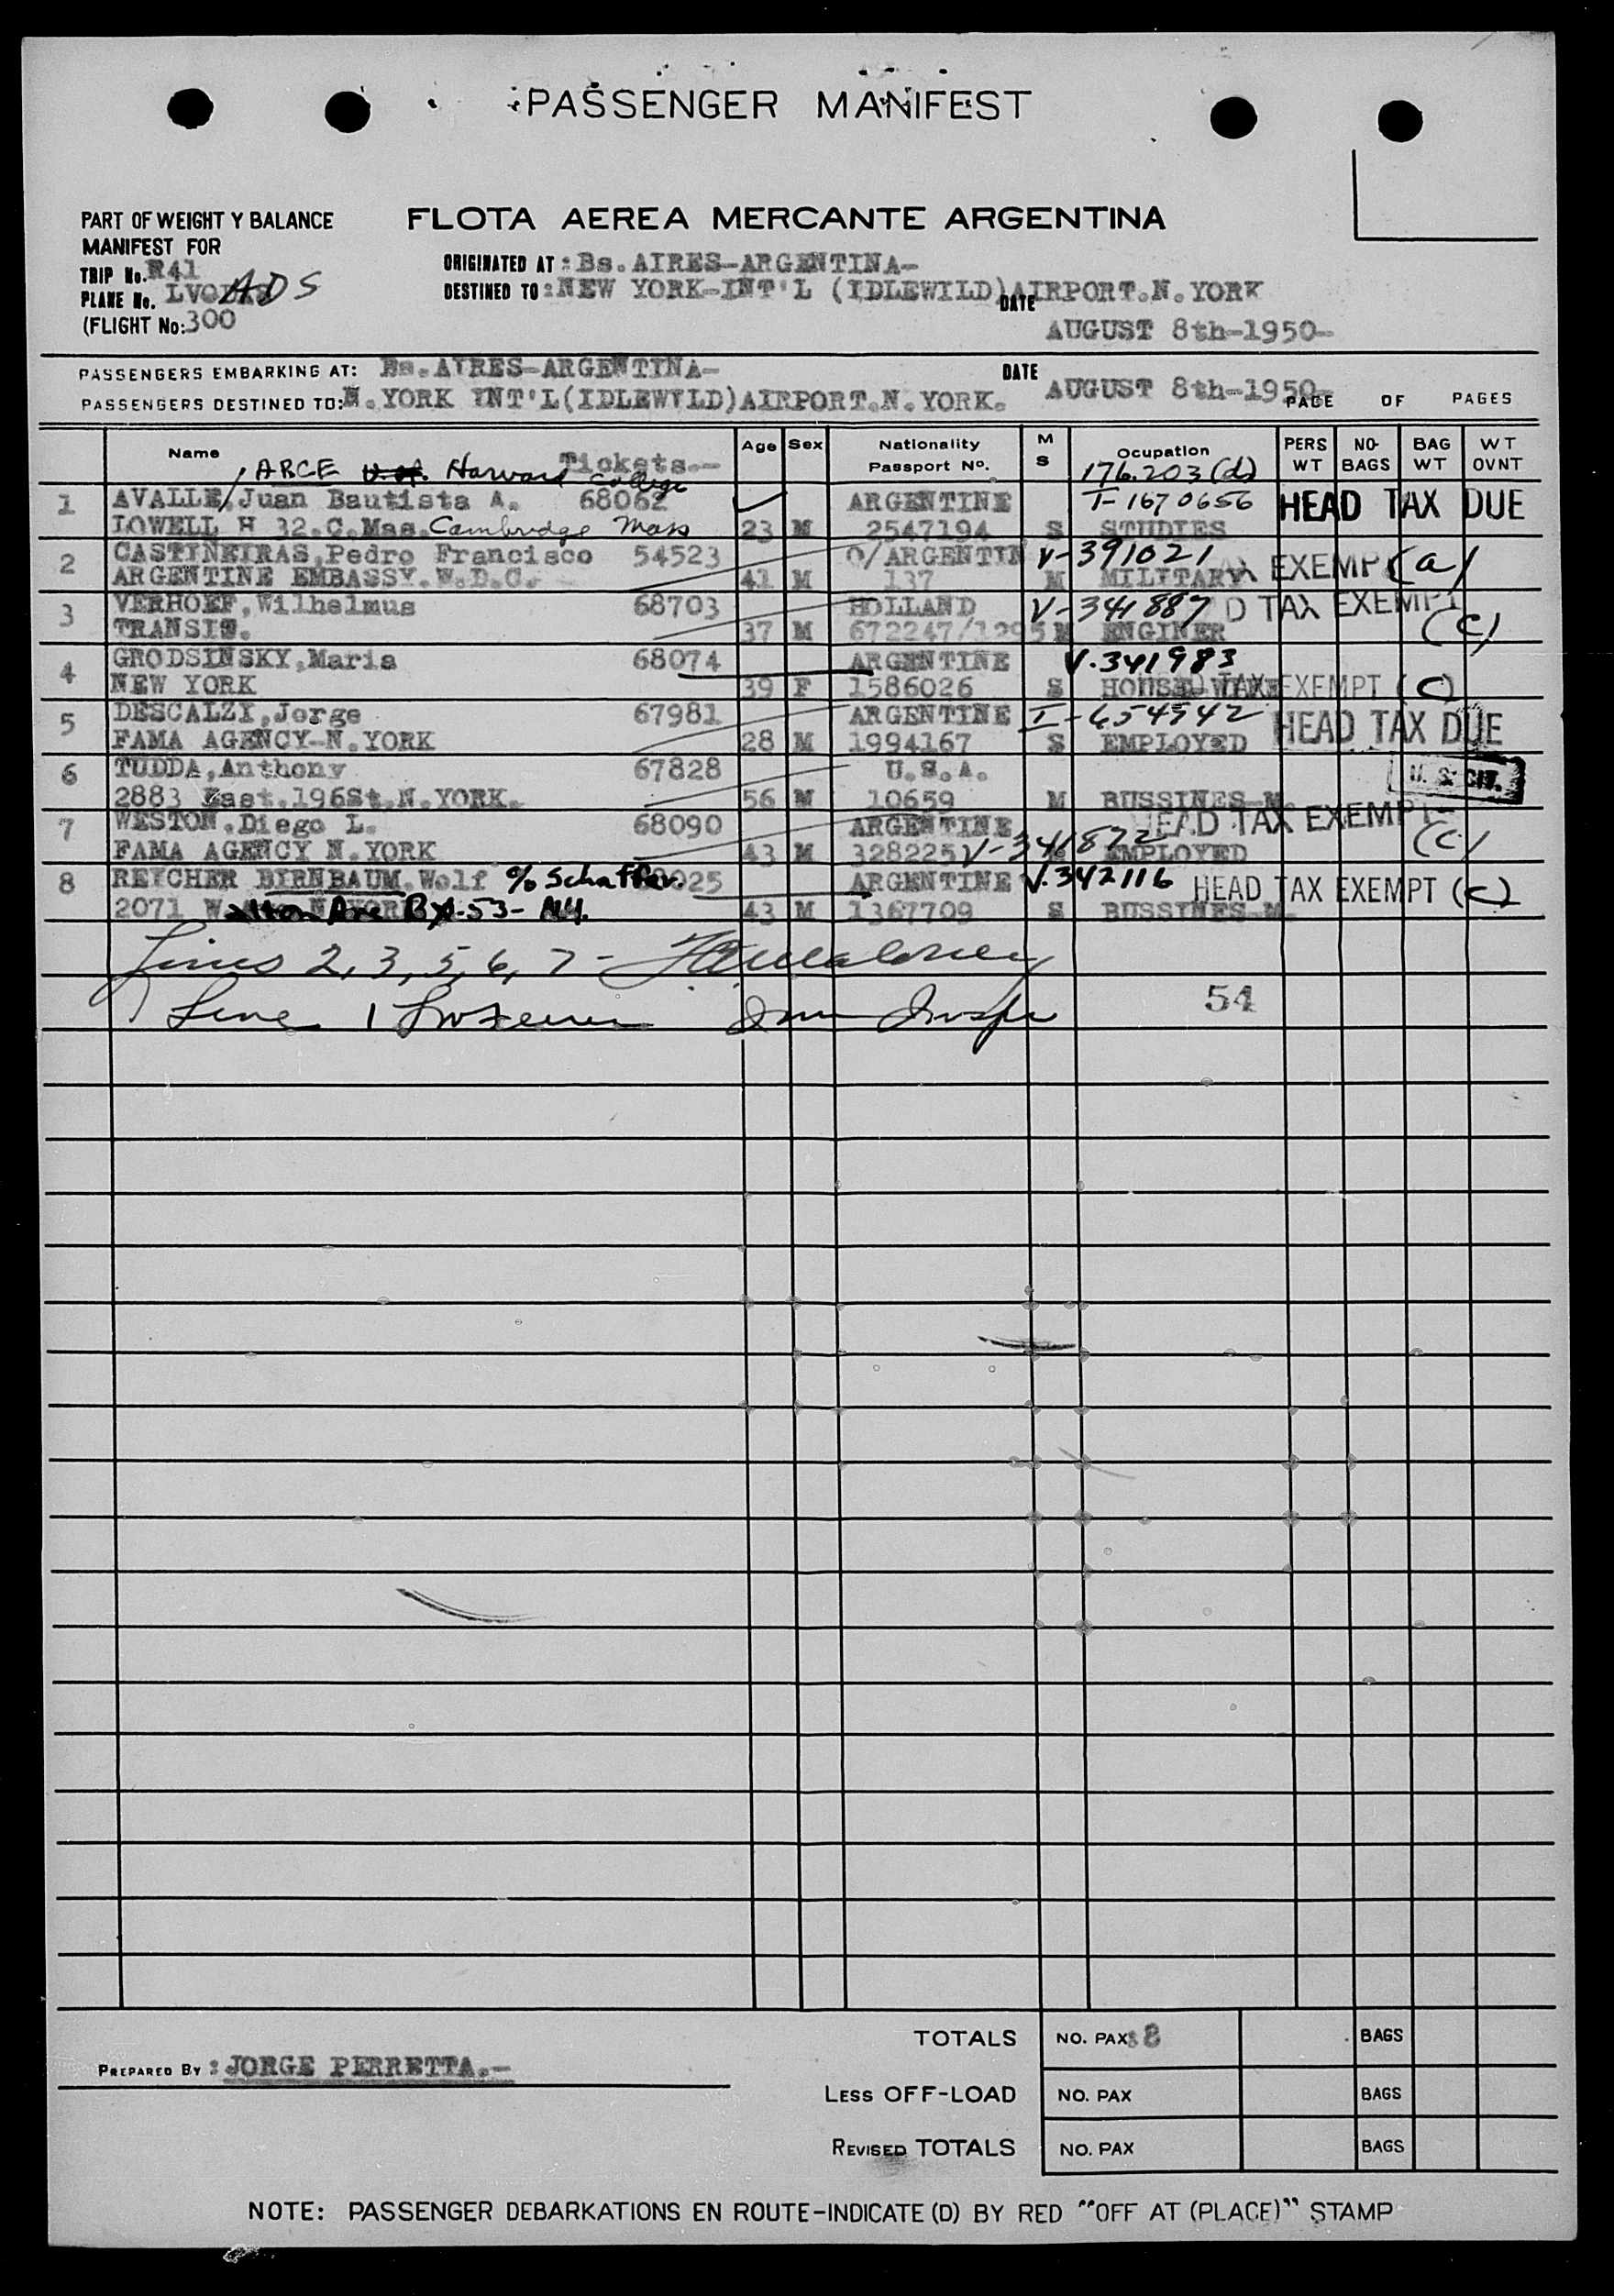 PASSENGER MANIFEST
FLOTA AEREA MERCANTE ARGENTINA
PART OF WEIGHT Y BALANCE
MANIFEST FOR
TRIP No. R41
PLANE No. ADS
(FLIGHT No: 300
ORIGINATED AT : Bs. AIRES-ARGENTINA-
DESTINED TO : NEW YORK-INT'L (IDLEWILD) AIRPORT. N. YORK
DATE AUGUST 8th-1950-
PASSENGERS EMBARKING AT: Bs. AIRES-ARGENTINA-
DATE AUGUST 8th-1950-
PASSENGERS DESTINED TO: N. YORK INT'L (IDLEWILD) AIRPORT. N. YORK.
PAGE OF PAGES
Name Tickets.- Age Sex Nationality Passport No. M S Ocupation PERS WT NO- BAGS BAG WT WT OVNT
ARCE Harvard College 176.203(d)
1 AVALLE, Juan Bautista A. 68062 ARGENTINE T-1670656 HEAD TAX DUE
LOWELL H 32. C. Mas. Cambridge Mass 23 M 2547194 S STUDIES
2 CASTINEIRAS, Pedro Francisco 54523 O/ARGENTIN V-391021 EXEMP (a)
ARGENTINE EMBASSY. W. D. C. 41 M 137 M MILITARY
3 VERHOEF, Wilhelmus 68703 HOLLAND V-341887 D TAX EXEMPT
TRANSIT. 37 M 672247/1295 M ENGINER (c)
4 GRODSINSKY, Maria 68074 ARGENTINE V.341983
NEW YORK 39 F 1586026 S HOUSE-WIFE TAX EXEMPT (C)
5 DESCALZI, Jorge 67981 ARGENTINE I-654542 HEAD TAX DUE
FAMA AGENCY-N. YORK 28 M 1994167 S EMPLOYED
6 TUDDA, Anthony 67828 U.S.A. U. S. CIT.
2883 East. 196St. N. YORK. 56 M 10659 M BUSSINES-M.
7 WESTON, Diego L. 68090 ARGENTINE V-341872 HEAD TAX EXEMPT
FAMA AGENCY N. YORK 43 M 328225 EMPLOYED (c)
8 REICHER BIRNBAUM, Wolf % Schaffer. ARGENTINE V.342116 HEAD TAX EXEMPT (C)
2071 Walton Ave Bx-53-N.Y. 43 M 1367709 S BUSSINES-M.
Lines 2, 3, 5, 6, 7 -
Line 1 Imm Inspr
54
TOTALS NO. PAX: 8 BAGS
PREPARED BY : JORGE PERRETTA.-
LESS OFF-LOAD NO. PAX BAGS
REVISED TOTALS NO. PAX BAGS
NOTE: PASSENGER DEBARKATIONS EN ROUTE-INDICATE (D) BY RED "OFF AT (PLACE)" STAMP